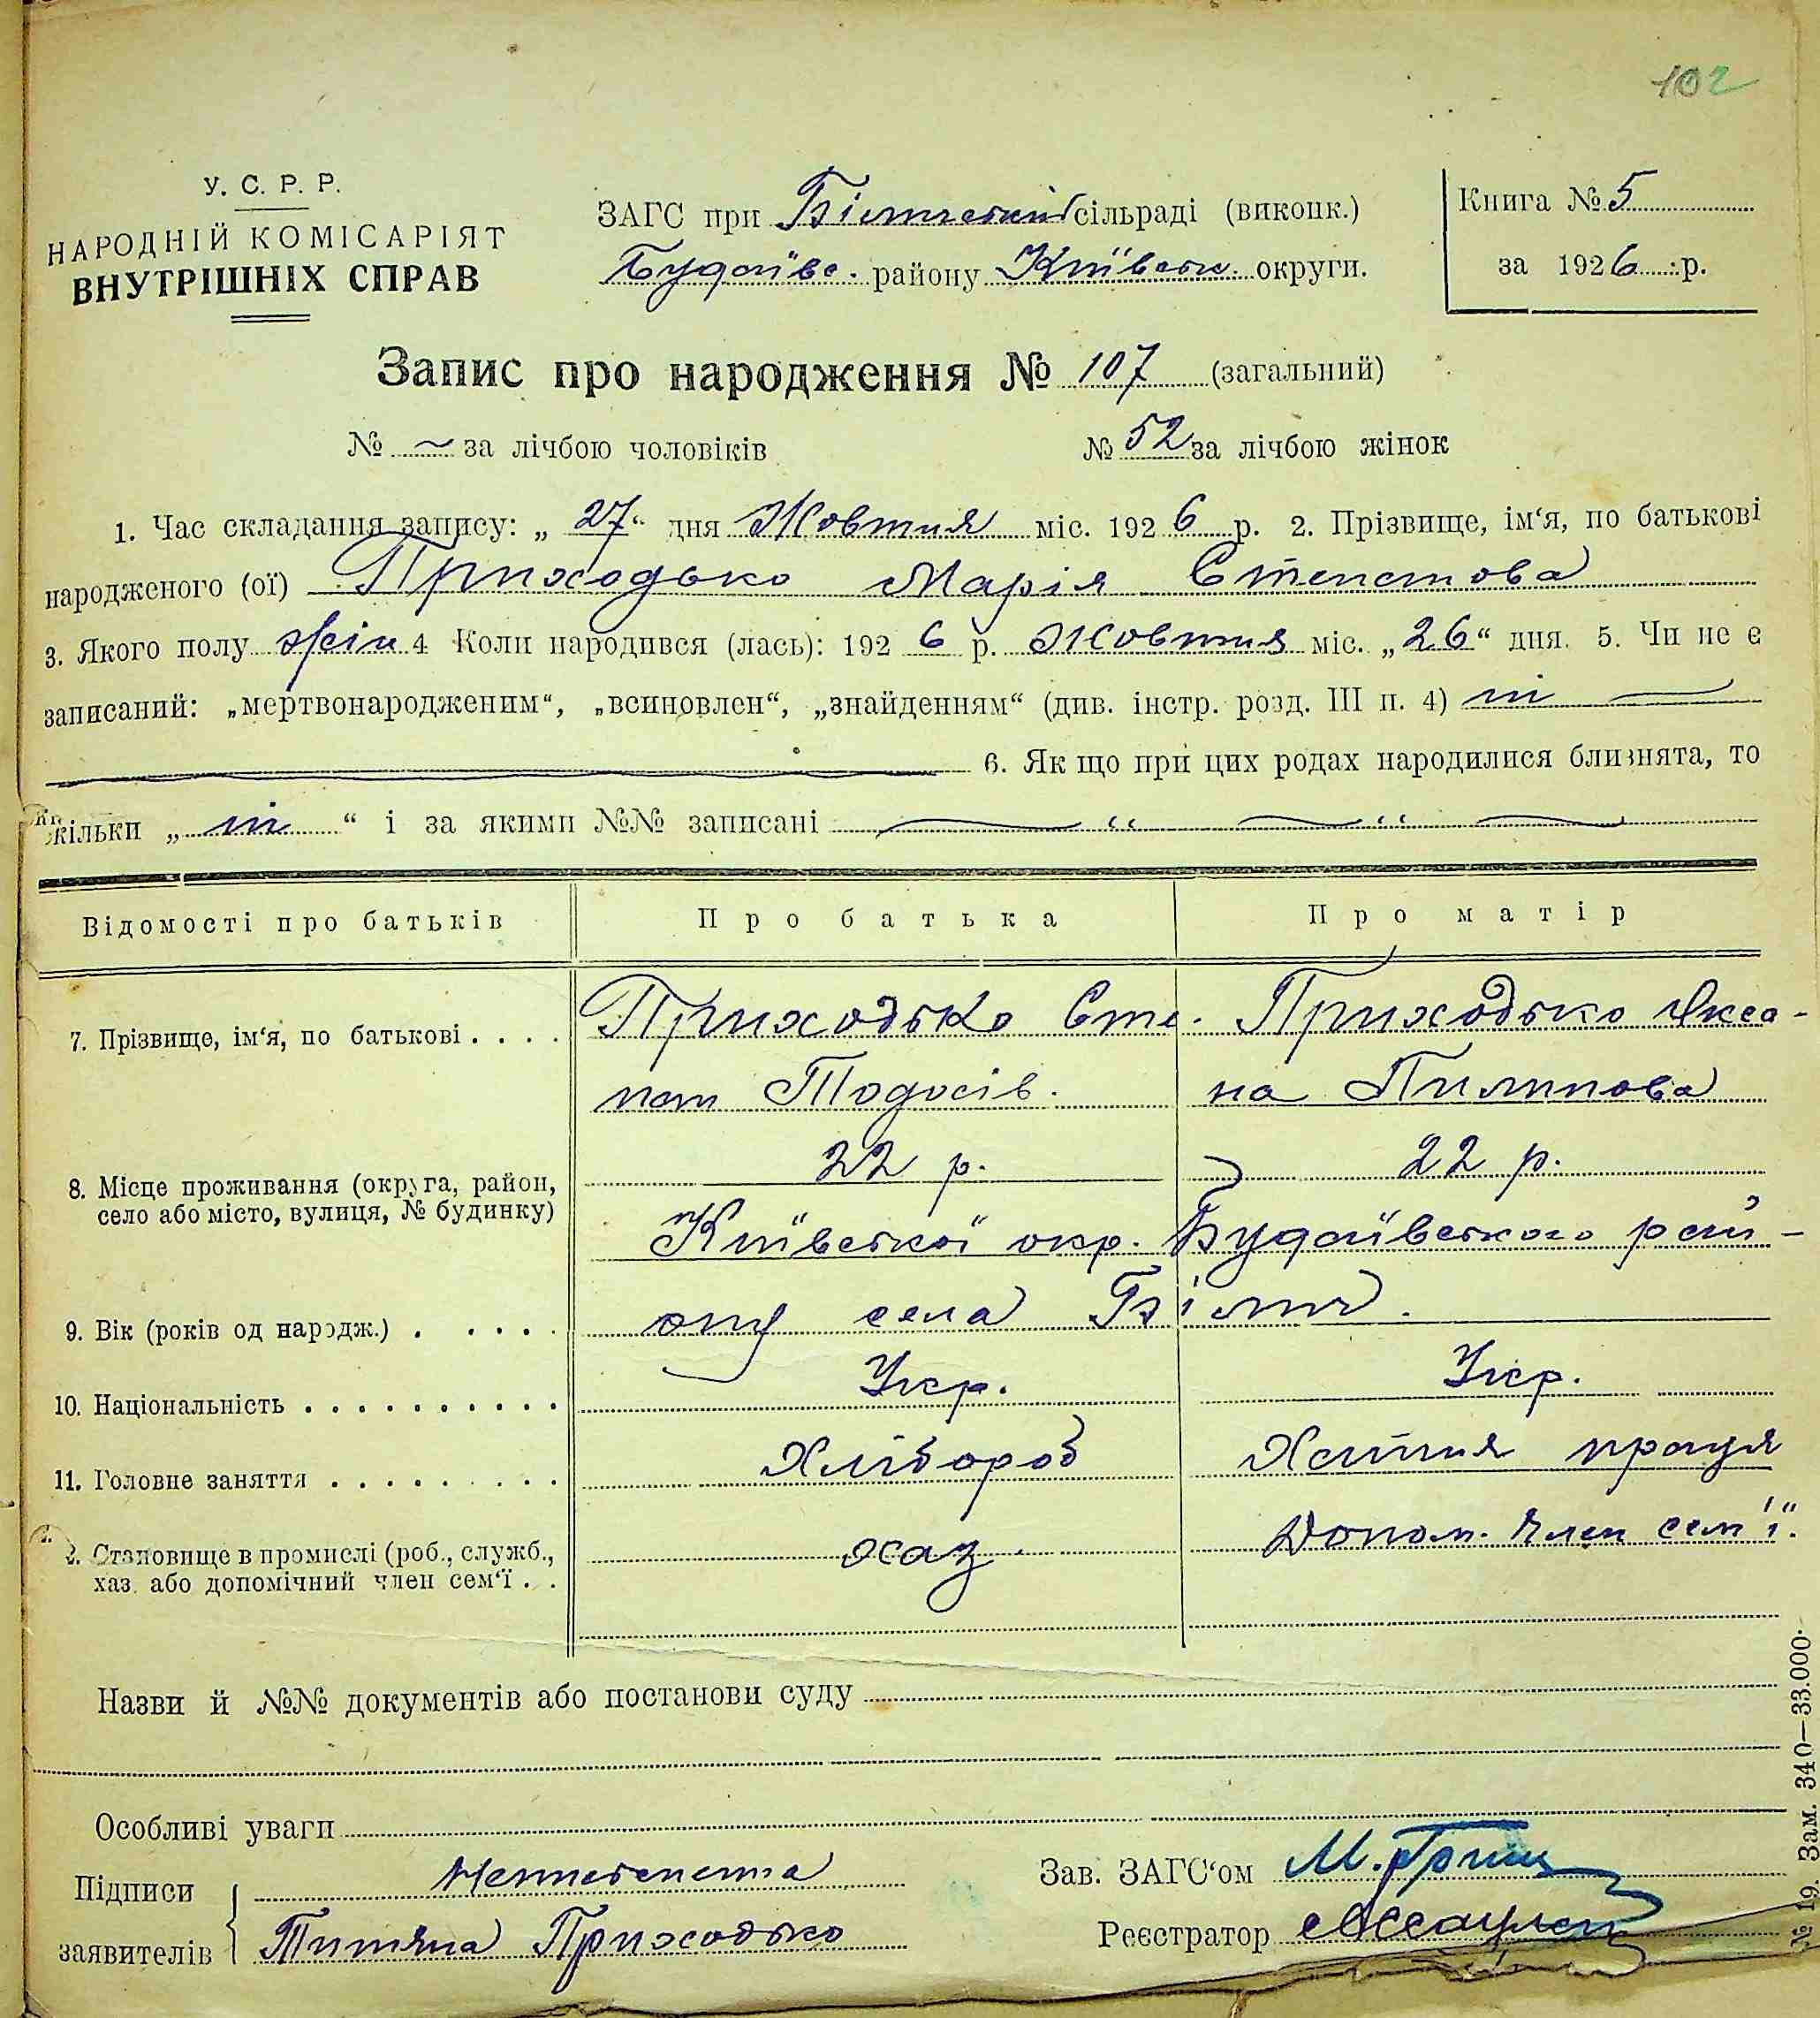 102
У. С. Р. Р.
НАРОДНІЙ КОМІСАРІЯТ
ВНУТРІШНІХ СПРАВ
ЗАГС при Білицькій сільраді (виконк.)
Будаївс. району Київськ. округи.
Книга № 5
за 1926 р.
Запис про народження № 107 (загальний)
№ ~ за лічбою чоловіків № 52 за лічбою жінок
1. Час складання запису: „ 27 “ дня Жовтня міс. 1926 р. 2. Прізвище, ім‘я, по батькові
народженого (ої) Приходько Марія Степанова
3. Якого полу жін 4 Коли народився (лась): 1926 р. Жовтня міс. „26“ дня. 5. Чи не є
записаний: „мертвонародженим“, „всиновлен“, „знайденням“ (див. інстр. розд. III п. 4) ні —
6. Як що при цих родах народилися близнята, то
кільки „ ні “ і за якими №№ записані — “ — “ —
Відомості про батьків Про батька Про матір
7. Прізвище, ім‘я, по батькові . . . . Приходько Сте- Приходько Окса-
пан Тодосів. на Пилипова
22 р. 22 р.
8. Місце проживання (округа, район,
село або місто, вулиця, № будинку)
Київської окр. Будаївського рай-
9. Вік (років од народж.) . . . . . ону села Біличі.
10. Національність . . . . . . . . . . Укр. Укр.
11. Головне заняття . . . . . . . . . Хлібороб Хатня праця
2. Становище в промислі (роб., служб.,
хаз. або допомічний член сем‘ї . .
хаз. Допом. член сем'ї.
Назви й №№ документів або постанови суду
Особливі уваги
Підписи
заявителів
Неписьменна
Титяна Приходько
Зав. ЗАГС‘ом М. Гриц
Реєстратор
№ 19. Зам. 340—33.000.